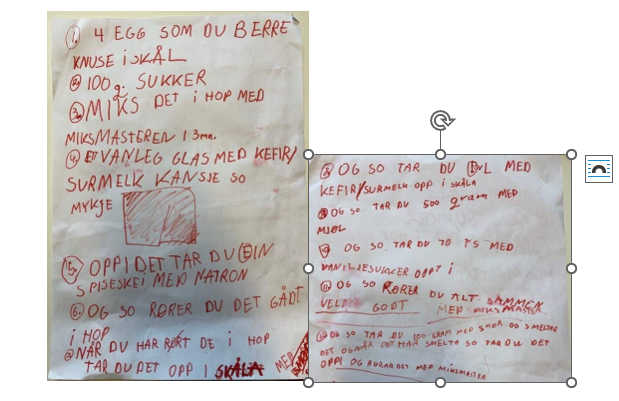 1. 4 EGG SOM DU BERRE
KNUSE i SKÅL
2. 100 g. SUKKER
3. MIKS DET i HOP MED
MIKSMASTEREN I 3mn.
4. ET VANLEG GLAS MED KEFIR/
SURMELK KANSJE SO
MYKJE
5. OPPI DET TAR DU EIN
SPISESKEI MED NATRON
6. OG SO RØRER DU DET GÅDT
i HOP
NÅR DU HAR RØRT DE i HOP
TAR DU DET OPP I SKÅLA MED
OG SO TAR DU L MED
KEFIR/SURMELK OPP i SKÅLA
OG SO TAR DU 500 gram MED
MJØL
OG SO TAR DU TS MED
VANILJESUKKER OPPI
OG SO RØRER DU ALT SAMMEN
VELDIG GODT MED MIKSMASTER
OG SO TAR DU 100 GRAM MED SMØR OG SMELTER
DET OG NÅR DET HAR SMELTA SO TAR DU DET
OPPI OG RØRAR DET MED MIKSMASTER